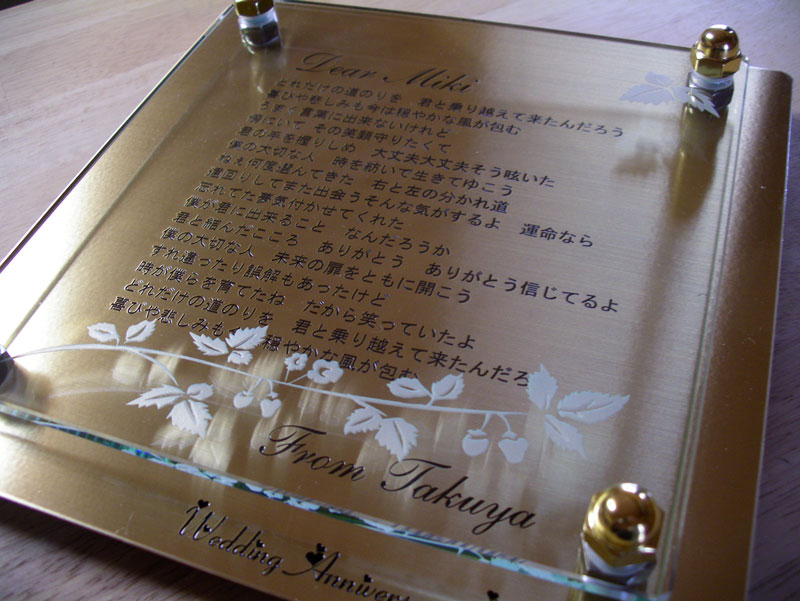 Dear Miki
どれだけの道のりを　君と乗り越えて来たんだろう
喜びや悲しみも今は穏やかな風が包む
うまく言葉に出来ないけれど
傍にいて その笑顔守りたくて
君の手を握りしめ　大丈夫大丈夫そう呟いた
僕の大切な人　時を紡いで生きてゆこう
ねぇ何度選んできた　右と左の分かれ道
遠回りしてまた出会うそんな気がするよ　運命なら
忘れてた勇気付かせてくれた
僕が君に出来ること　なんだろうか
君と結んだこころ　ありがとう　ありがとう信じてるよ
僕の大切な人　未来の扉をともに開こう
すれ違ったり誤解もあったけど
時が僕らを育てたね　だから笑っていたよ
どれだけの道のりを　君と乗り越えて来たんだろ
喜びや悲しみも 穏やかな風が包む
From Takuya
Wedding